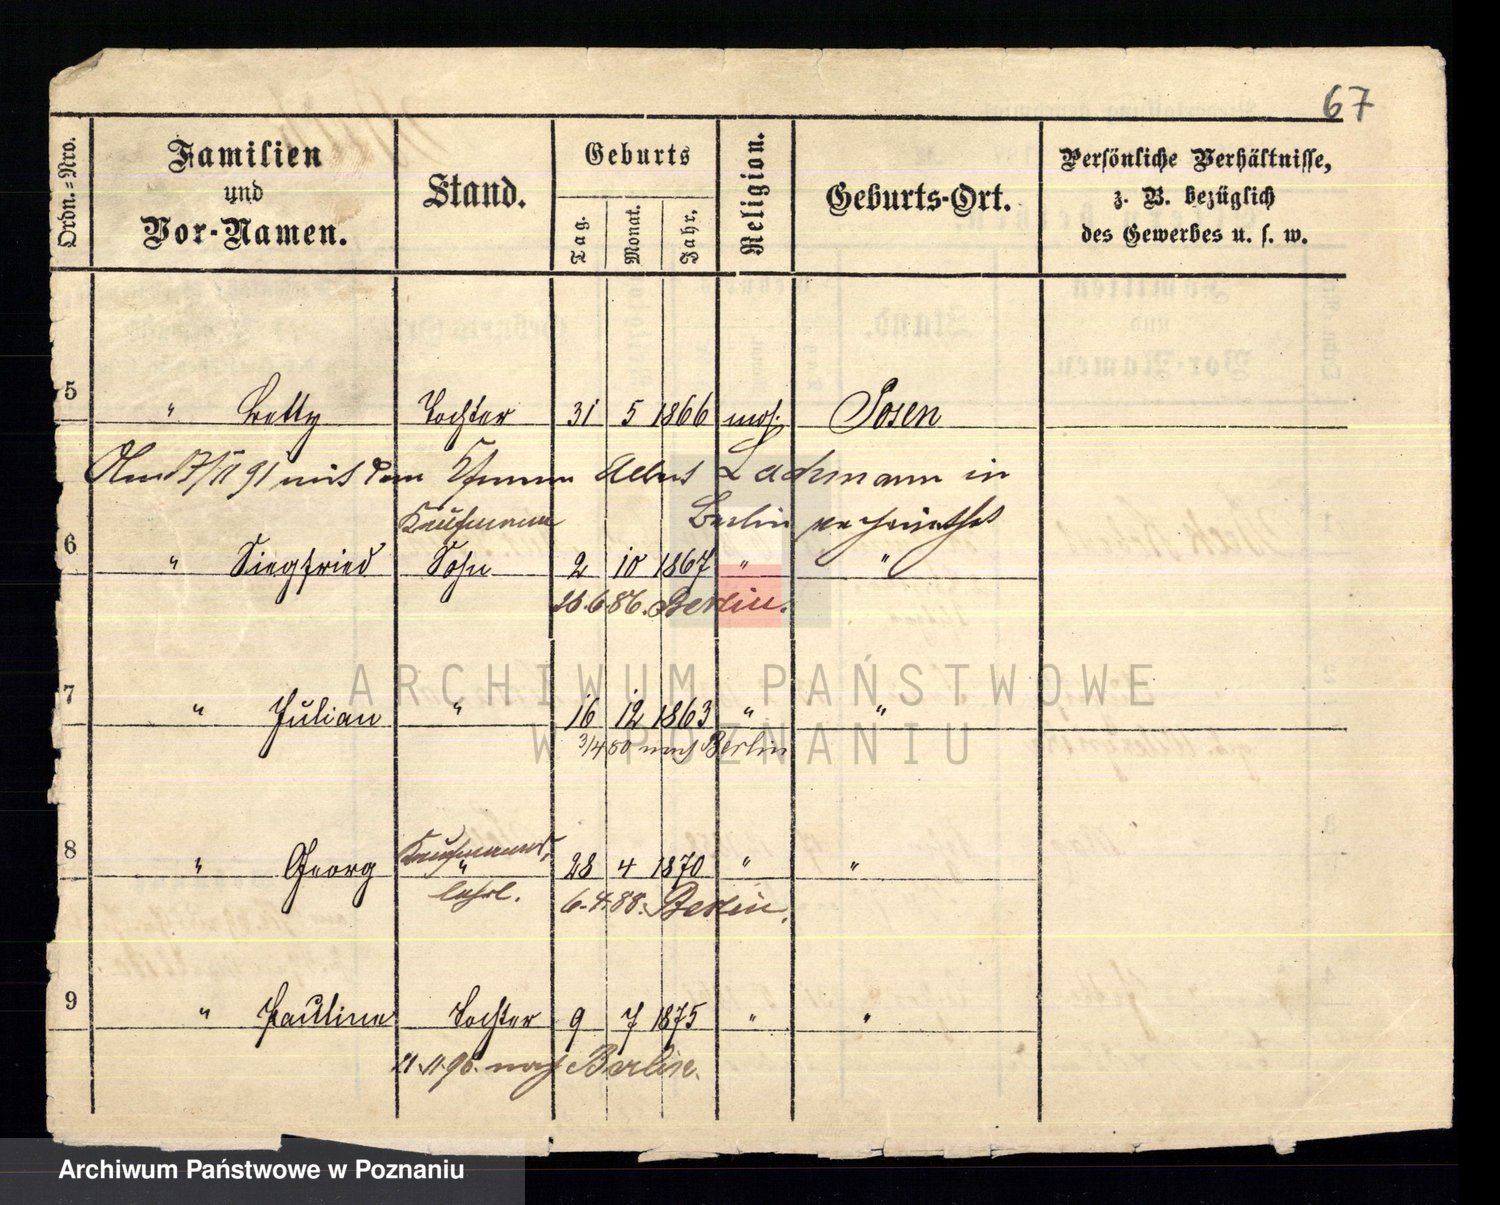 67
Ordn.-Nro.
Familien
und
Vor-Namen.
Stand.
Geburts
Tag.
Monat.
Jahr.
Religion.
Geburts-Ort.
Persönliche Verhältnisse,
z. B. bezüglich
des Gewerbes u. s. w.
5 " Betty Tochter 31 5 1866 mos. Posen
Am 17/II 91 mit dem Albert Lachmann in
Berlin verheirathet
Kaufmann
6 " Siegfried Sohn 2 10 1867 " "
28.6.86. Berlin.
7 " Julian " 16 12 1863 " "
3/4 nach Berlin
Kaufmanns
8 " Georg " 28 4 1870 " "
lehrl. 6.4.88. Berlin.
9 " Pauline Tochter 9 7 1875 " "
nach Berlin.
ARCHIWUM PAŃSTWOWE
W POZNANIU
Archiwum Państwowe w Poznaniu